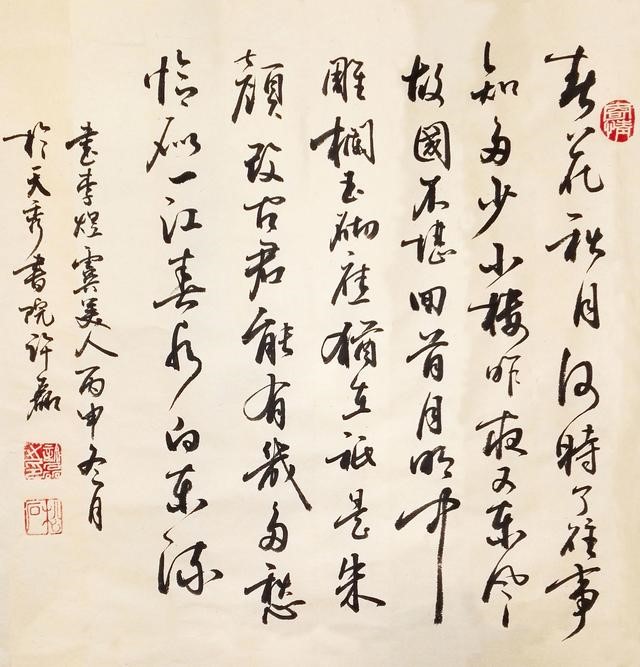 春花秋月何時了往事
知多少小樓昨夜又東風
故國不堪回首月明中
雕欄玉砌應猶在祗是朱
顏改問君能有幾多愁
恰似一江春水向東流
書李煜虞美人丙申冬月
於天秀書院許磊